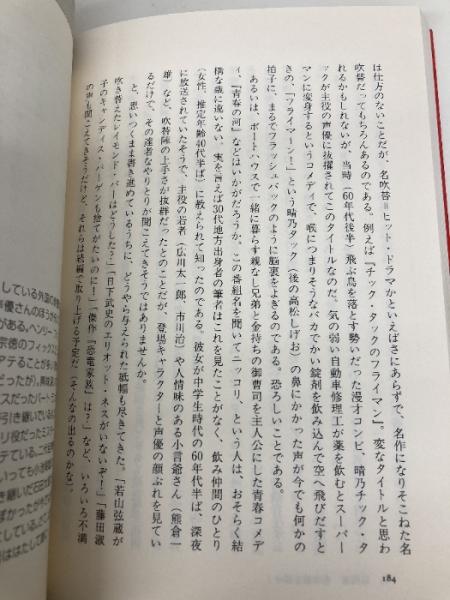 は仕方のないことだが、名吹替＝ヒット・ドラマかといえばさにあらずで、名作になりそこねた名
吹替だってもちろんあるのである。例えば『チック・タックのフライマン』。変なタイトルと思わ
れるかもしれないが、当時（60年代後半）飛ぶ鳥を落とす勢いだった漫才コンビ、晴乃チック・タ
ックが主役の声優に抜擢されてこのタイトルなのだ。気の弱い自動車修理工が薬を飲むとスーパー
マンに変身するというコメディで、喉につまりそうなバカでかい錠剤を飲み込んで空へ飛びだすと
きの、「フライマーン！」という晴乃タック（後の高松しげお）の鼻にかかった声が今でも何かの
拍子に、まるでフラッシュバックのように脳裏をよぎるのである。恐ろしいことである。
あるいは、ボートハウスで一緒に暮らす親なし兄弟と金持ちの御曹司を主人公にした青春コメデ
ィ、『青春の河』などはいかがだろうか。この番組名を聞いてニッコリ、という人は、おそらく結
構な歳に違いない。実を言えば30代地方出身者の筆者はこれを見たことがなく、飲み仲間のひとり
（女性、推定年齢40代半ば）に教えられて知ったのである。彼女が中学生時代の60年代半ば、深夜
に放送されていたそうで、主役の若者（広川太一郎、市川治）や人情味のある小言爺さん（熊倉一
雄）など、吹替陣の上手さが抜群だったとのことだが、登場キャラクターと声優の顔ぶれを見てい
るだけで、その達者なやりとりが聞こえてきそうではありませんか。
と、思いつくまま書き進めているうちに、どうやら与えられた紙幅も尽きてきた。「若山弦蔵が
吹き替えたレイモンド・バーはどうした？」「日下武史のエリオット・ネスがいないぞ！」「藤田淑
子のキャンディス・バーゲンも捨てがたいのに！」「傑作『恐竜家族』は？」など、いろいろ不満
の声も聞こえてきそうだけど、それらは続編で取り上げる予定だ（そんなの出るのかな？）。
184